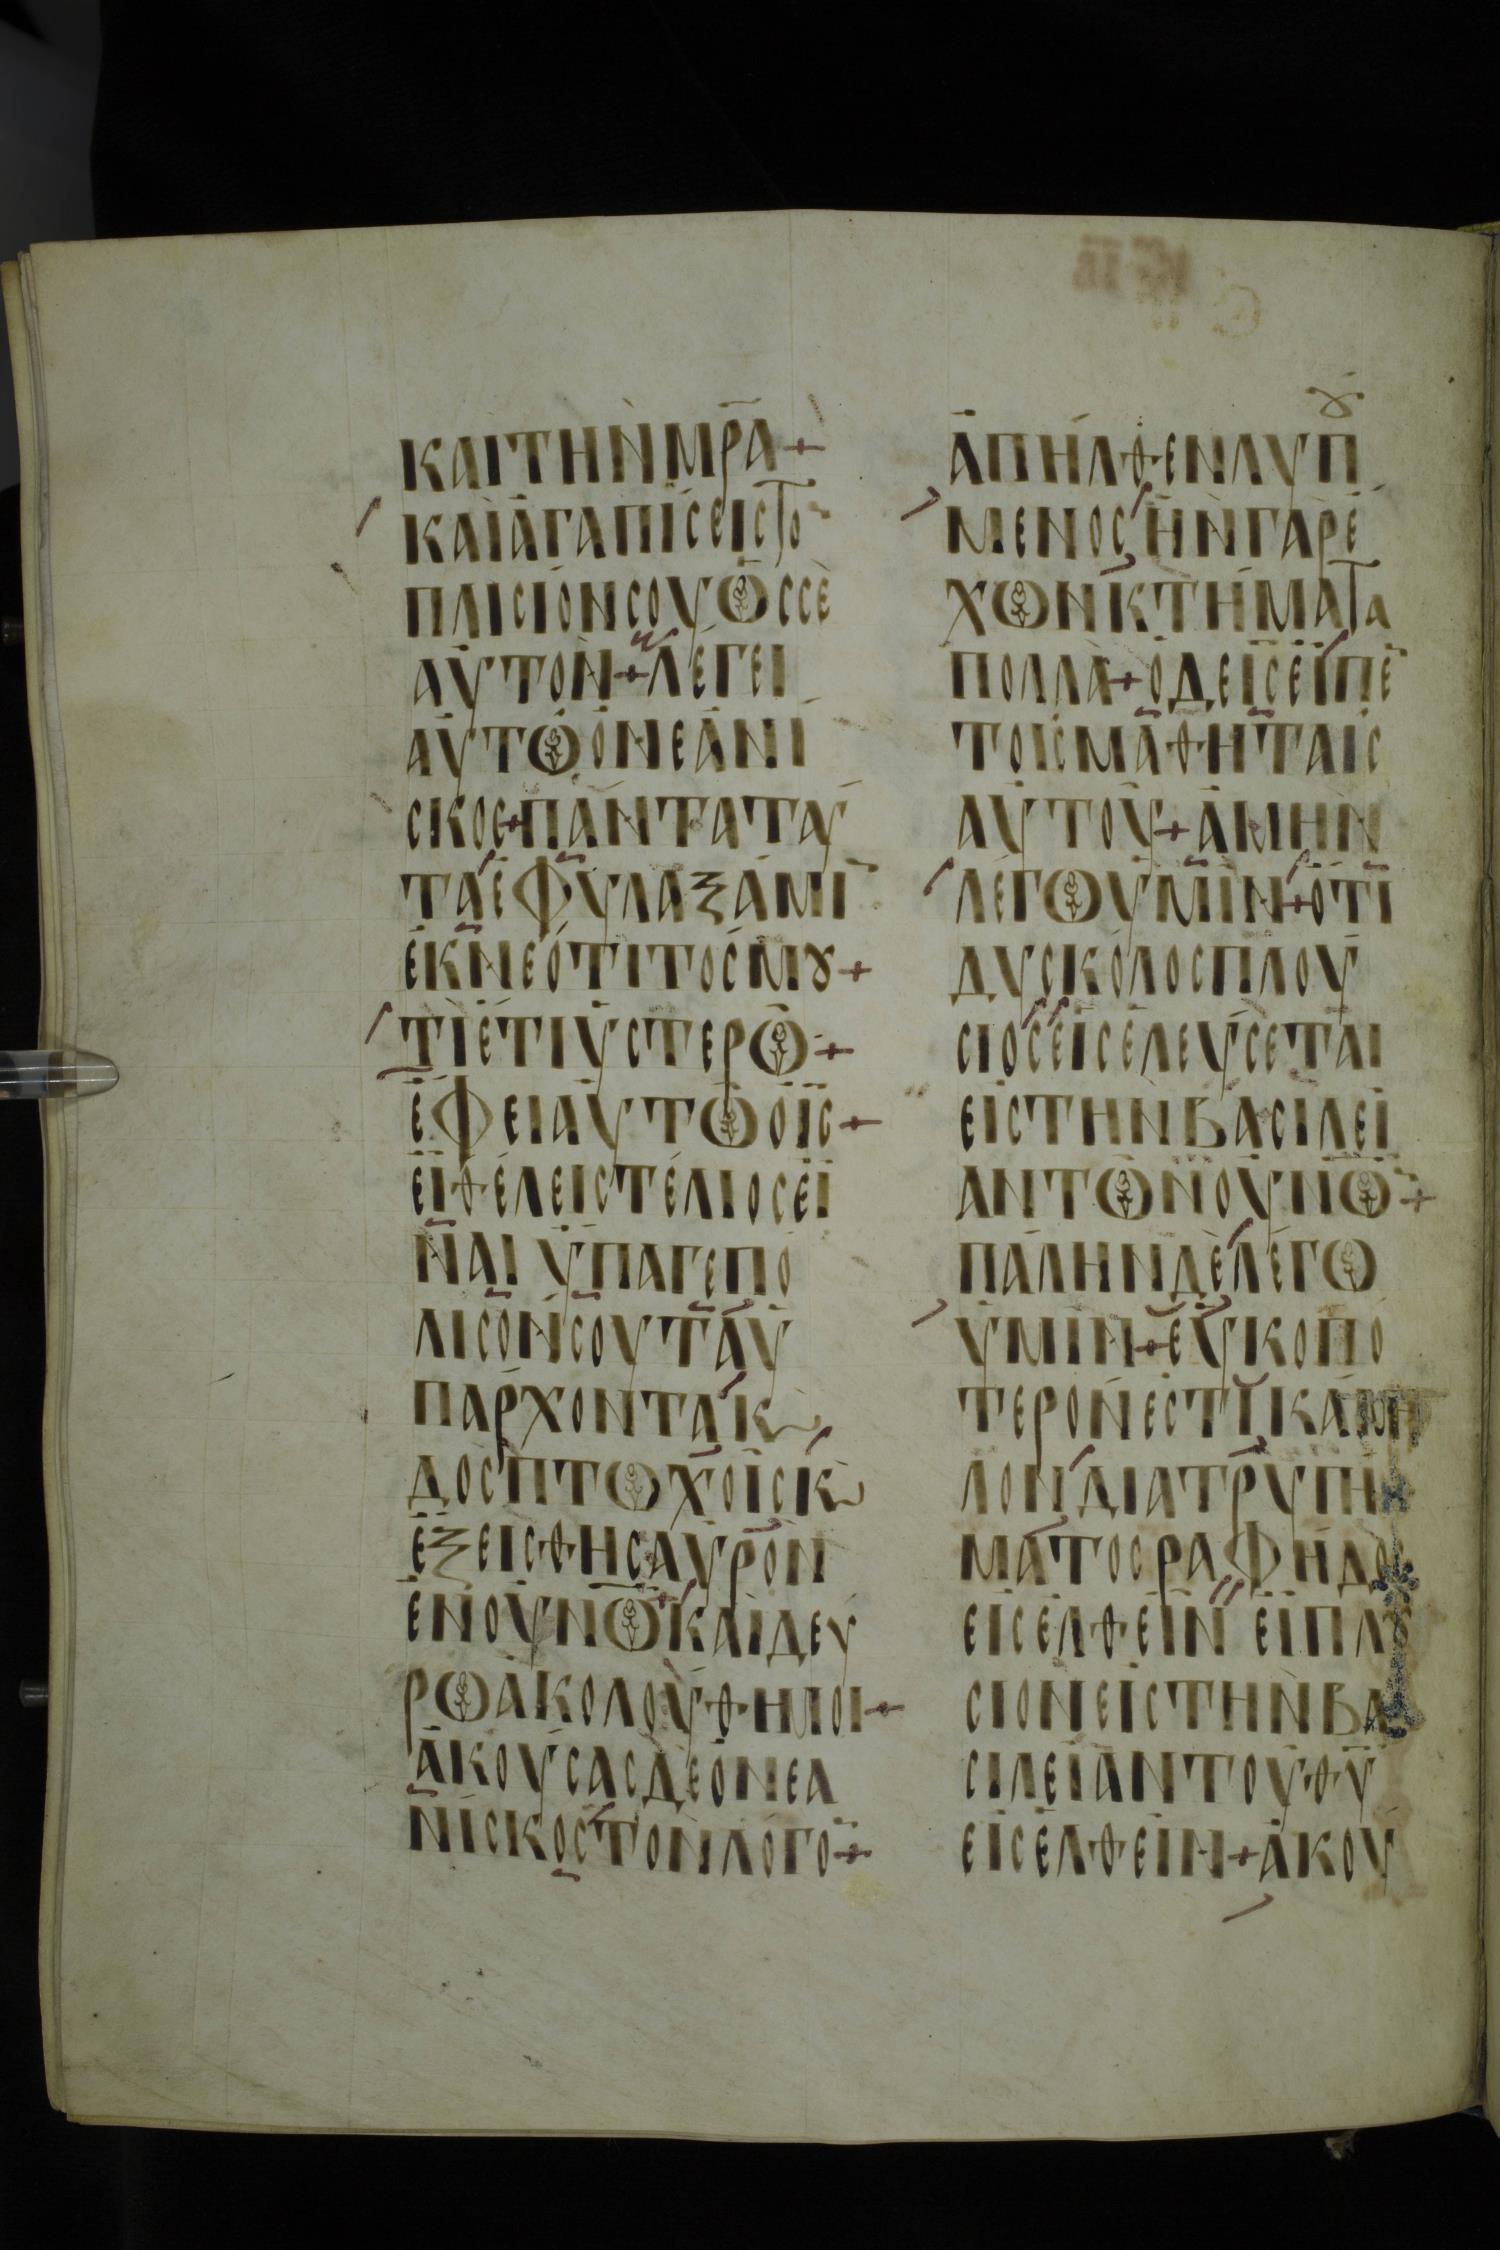 ΚΑΙ ΤΗΝ ΜΡΑ +
ΚΑΙ ΑΓΑΠΙΣΕΙΣ ΤΟ
ΠΛΙΣΙΟΝ ΣΟΥ ΩΣ ΣΕ
ΑΥΤΟΝ + ΛΕΓΕΙ
ΑΥΤΩ Ο ΝΕΑΝΙ
ΣΚΟΣ + ΠΑΝΤΑ ΤΑΥ
ΤΑ ΕΦΥΛΑΞΑΜΙ
ΕΚ ΝΕΟΤΙΤΟΣ ΜȢ +
ΤΙ ΕΤΙ ΥΣΤΕΡΩ +
ΕΦΕΙ ΑΥΤΩ Ο ΙΣ +
ΕΙ ΘΕΛΕΙΣ ΤΕΛΙΟΣ ΕΙ
ΝΑΙ ΥΠΑΓΕ ΠΟ
ΛΙΣΟΝ ΣΟΥ ΤΑ Υ
ΠΑΡΧΟΝΤΑ Κ
ΔΟΣ ΠΤΩΧΟΙΣ Κ
ΕΞΕΙΣ ΘΗΣΑΥΡΟΝ
ΕΝ ΟΥΝΩ + ΚΑΙ ΔΕΥ
ΡΩ ΑΚΟΛΟΥΘΗ ΜΟΙ +
ΑΚΟΥΣΑΣ ΔΕ Ο ΝΕΑ
ΝΙΣΚΟΣ ΤΟΝ ΛΟΓΟ +
ΑΠΗΛΘΕΝ ΛΥΠȢ
ΜΕΝΟΣ ΗΝ ΓΑΡ Ε
ΧΩΝ ΚΤΗΜΑΤΑ
ΠΟΛΛΑ + Ο ΔΕ ΙΣ ΕΙΠΕ
ΤΟΙΣ ΜΑΘΗΤΑΙΣ
ΑΥΤΟΥ + ΑΜΗΝ
ΛΕΓΩ ΥΜΙΝ + ΟΤΙ
ΔΥΣΚΟΛΟΣ ΠΛΟΥ
ΣΙΟΣ ΕΙΣΕΛΕΥΣΕΤΑΙ
ΕΙΣ ΤΗΝ ΒΑΣΙΛΕΙ
ΑΝ ΤΩΝ ΟΥΝΩ +
ΠΑΛΗΝ ΔΕ ΛΕΓΩ
ΥΜΙΝ + ΕΥΚΟΠΟ
ΤΕΡΟΝ ΕΣΤΙ ΚΑΜΗ
ΛΟΝ ΔΙΑ ΤΡΥΠΗ
ΜΑΤΟΣ ΡΑΦΗΔΟΣ
ΕΙΣΕΛΘΕΙΝ ΕΙ ΠΛȢ
ΣΙΟΝ ΕΙΣ ΤΗΝ ΒΑ
ΣΙΛΕΙΑΝ ΤΟΥ ΘΥ
ΕΙΣΕΛΘΕΙΝ + ΑΚΟΥ